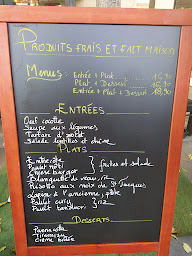 Produits frais et fait maison
Menus: Entrée + Plat
Plat + Dessert
Entrée + Plat + Dessert 18,90
Entrées
Oeuf cocotte
Soupe aux légumes
Tartare d'
Salade lentilles et chèvre
Plats
Entrecôte
Poulet rôti
Cheese burger
frites et salade
Blanquette de veau, riz
Risotto aux noix de St Jacques
à l'ancienne, pâtes
Poulet curry
Poulet
riz
Desserts
Pannacotta
Tiramisu
Crème brûlée